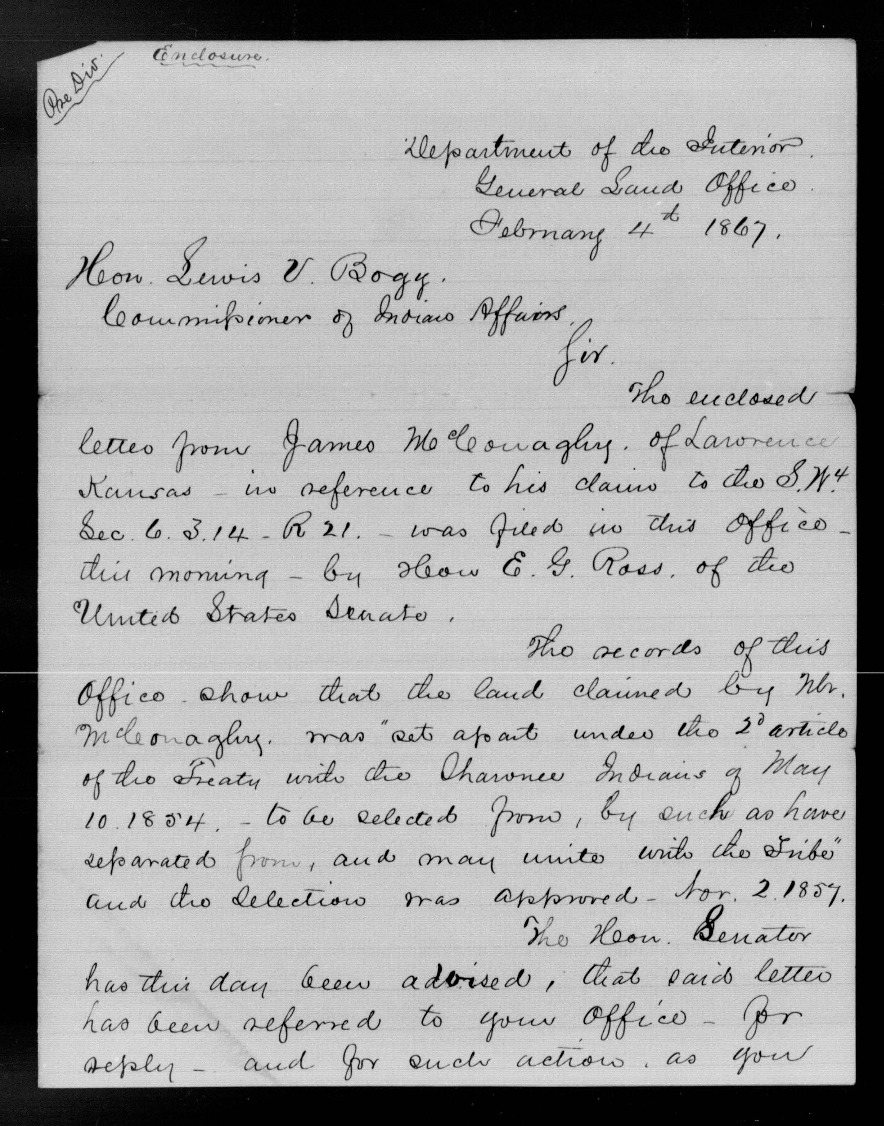 Enclosure.
Department of the Interior.
General Land Office.
February 4th 1867.
Hon. Lewis V. Bogy.
Commissioner of Indian Affairs.
Sir.
The enclosed
letter from James McConaghy. of Lawrence
Kansas - in reference to his claim to the S.W.4
Sec. 6. 14 - R 21. - was filed in this Office -
this morning - by Hon E. G. Ross. of the
United States Senate.
The records of this
Office show that the land claimed by Mr.
McConaghy. was "set apart under the 2d article
of the Treaty with the Shawnee Indians of May
10. 1854. - to be selected from, by such as have
separated from, and may unite with the Tribe"
and the selection was approved - Nov. 2. 1857.
The Hon. Senator
has this day been advised, that said letter
has been referred to your Office - for
reply - and for such action. as you